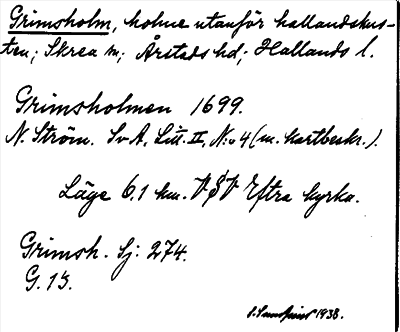 Grimsholm, holme utanför hallandskus-
ten; Skrea sn; Årstads hd; Hallands l.
Grimsholmen 1699.
N. Ström. Sv A, Litt. II, N:o 4 (m. kartbeskr.).
Läge 6.1 km. V S V Eftra kyrka.
Grimsh. Sj: 274.
G. 13.
1938.